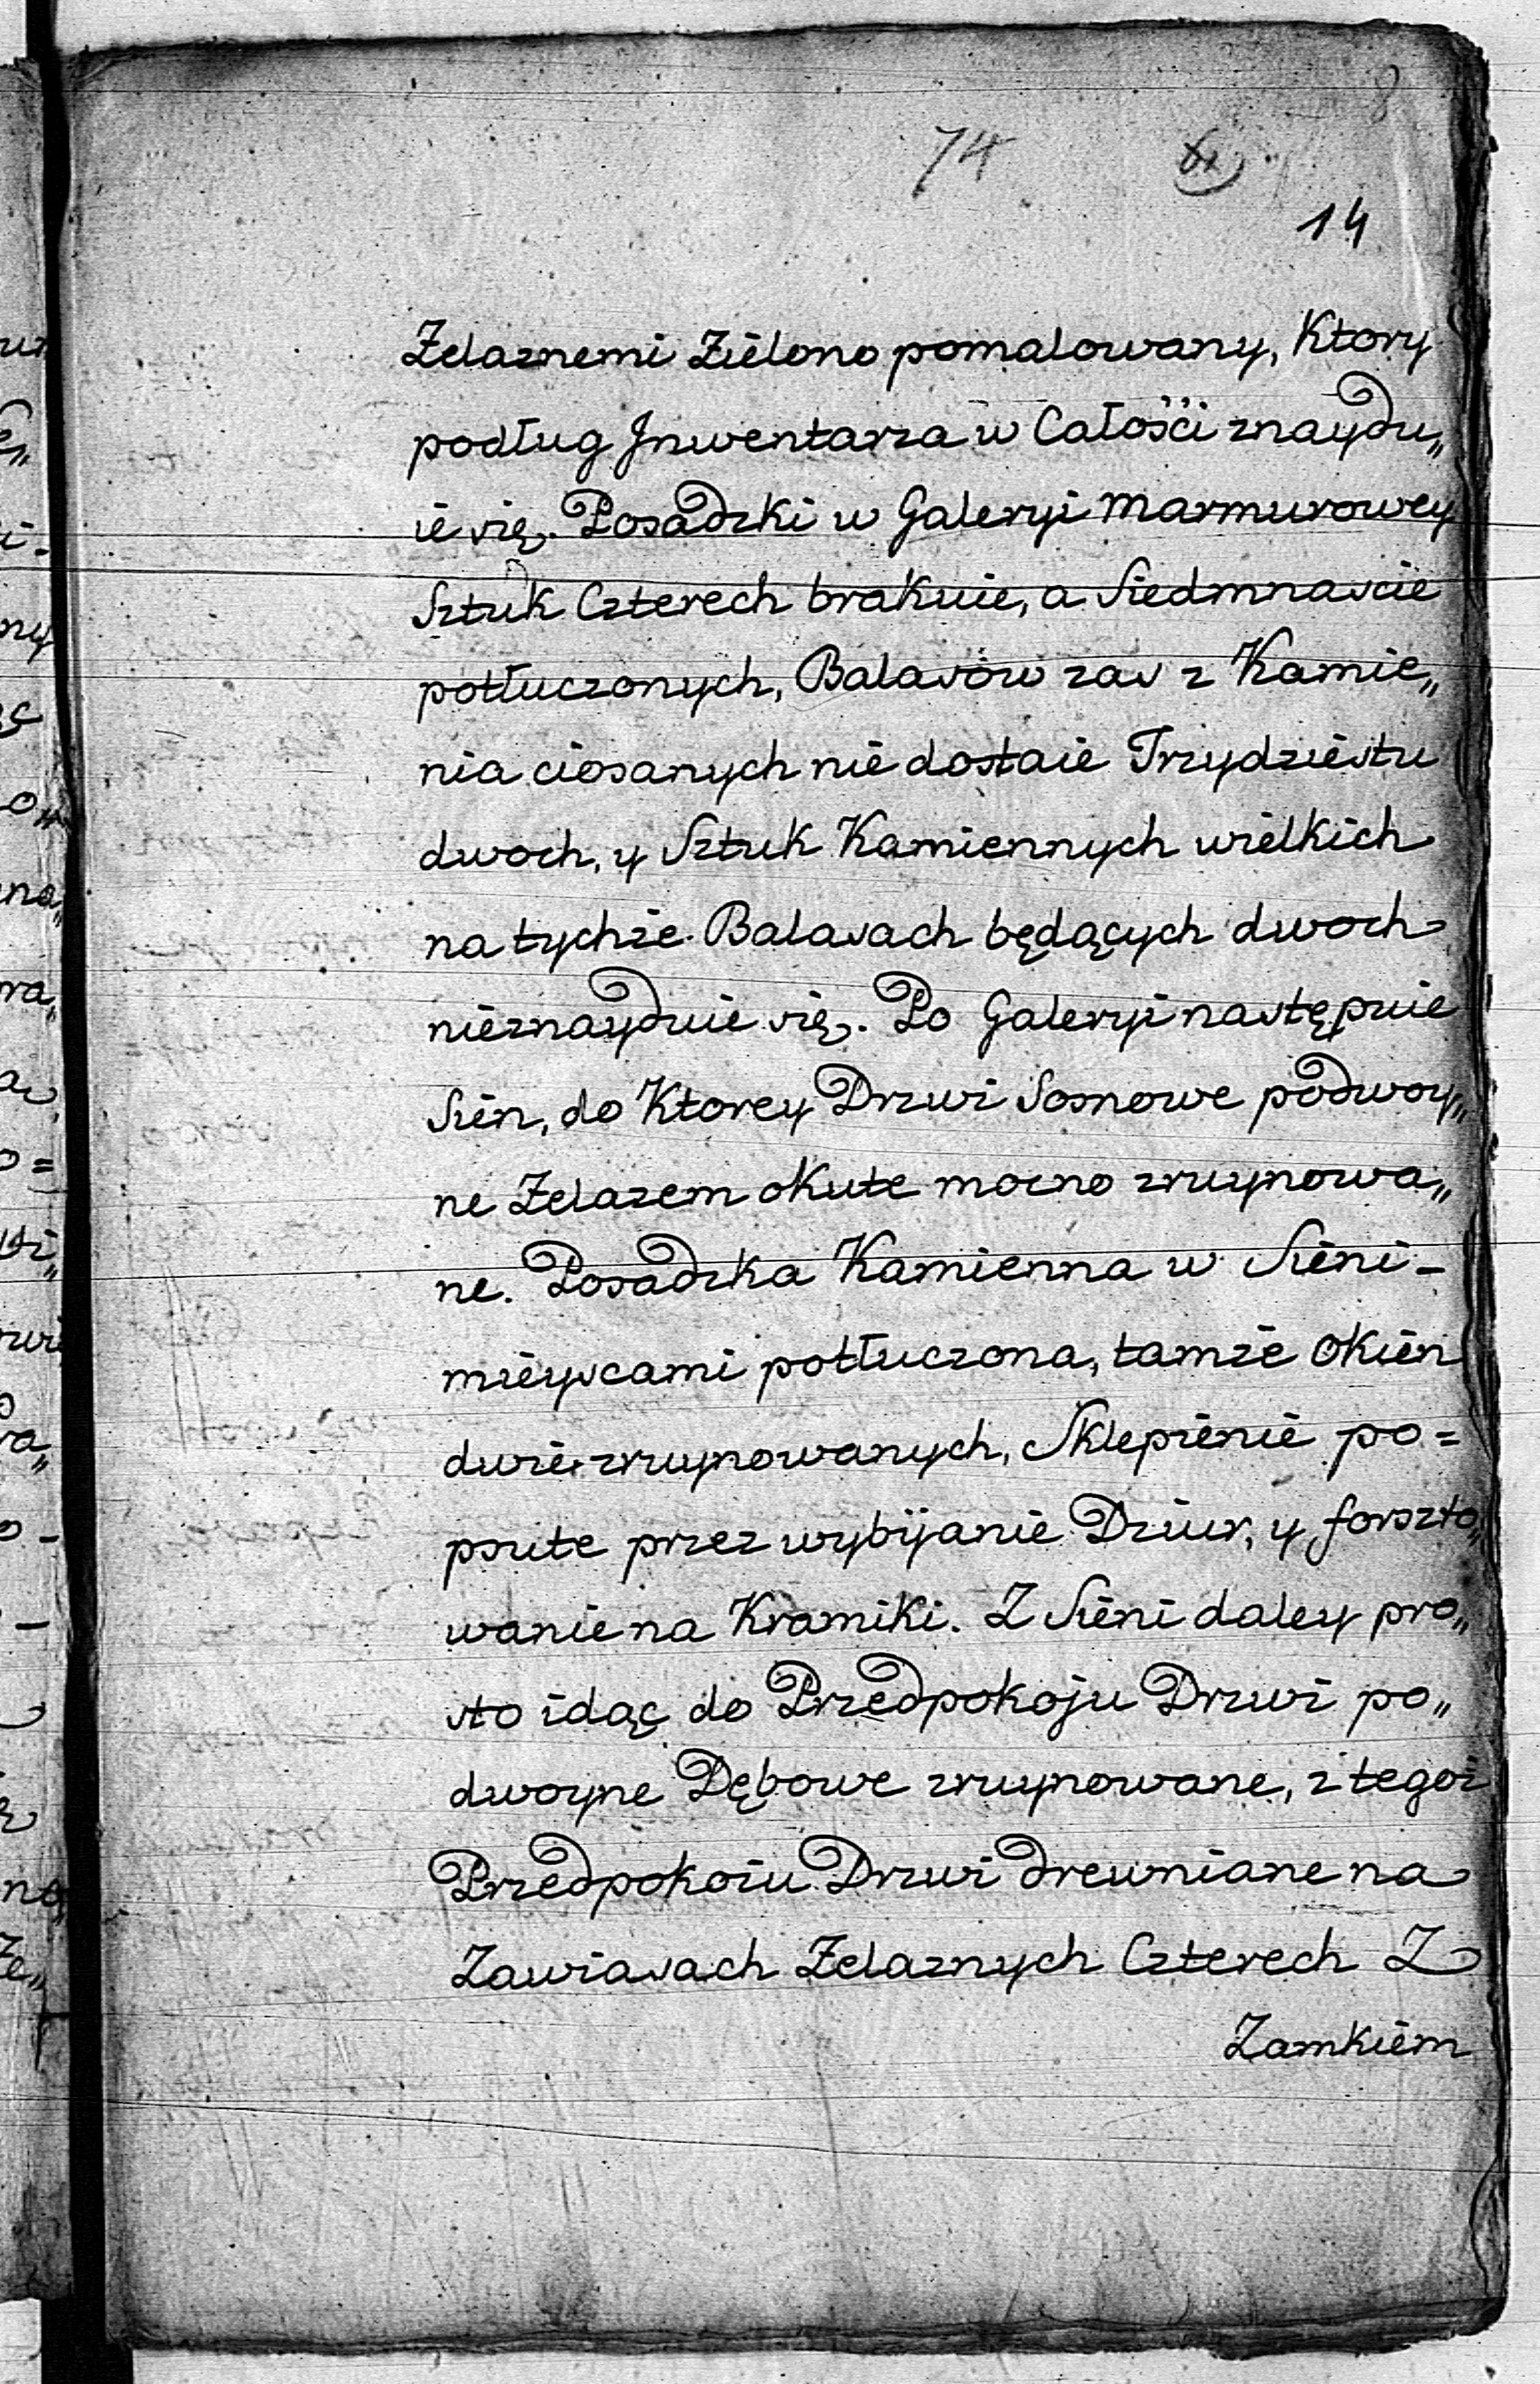 8
74
14
Żelaznemi Zielono pomalowany, Ktory
podług Jnwentarza w Całości znaydu„
ie się. Posadzki w Galeryi Marmurowey
Sztuk Czterech brakuie, a Siedmnascie
potłuczonych, Balasów zas z Kamie„
nia ciosanych nie dostaie Trzydziestu
dwoch, y Sztuk Kamiennych wielkich
na tychże Balasach będących dwoch
nieznayduie się. Po Galeryi następuie
Sień, do Ktorey Drzwi Sosnowe podwoy„
ne Żelazem okute mocno zruynowa„
ne. Posadzka Kamienna w Sieni -
mieyscami potłuczona, tamże Okien
dwie zruynowanych, Sklepienie po=
psute przez wybijanie Dziur, y forszto„
wanie na Kramiki. Z Sieni daley pro„
sto idąc do Przedpokoju Drzwi po„
dwoyne Dębowe zruynowane, z tegoż
Przedpokoiu Drzwi drewniane na
Zawiasach Żelaznych Czterech Z
Zamkiem